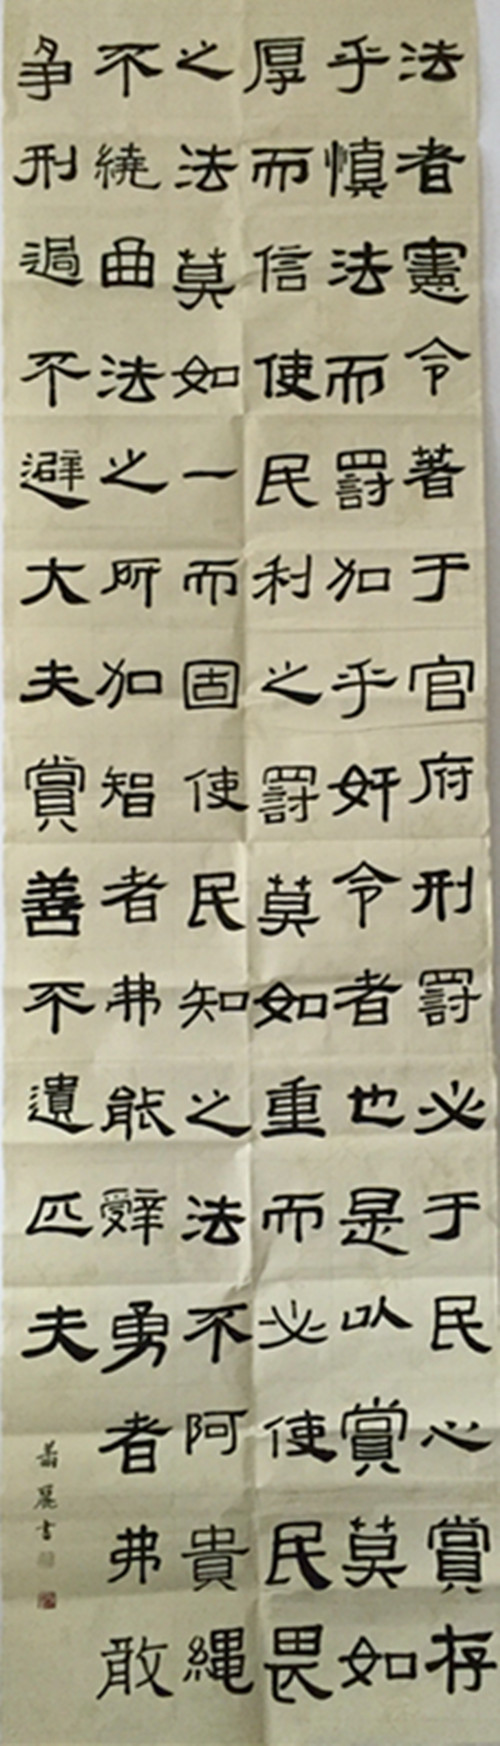 法者憲令著于官府刑罰必于民心賞存
乎慎法而罰加乎奸令者也是以賞莫如
厚而信使民利之罰莫如重而必使民畏
之法莫如一而固使民知之法不阿貴繩
不繞曲法之所加智者弗能辭勇者弗敢
争刑過不避大夫賞善不遺匹夫
蕭麗書